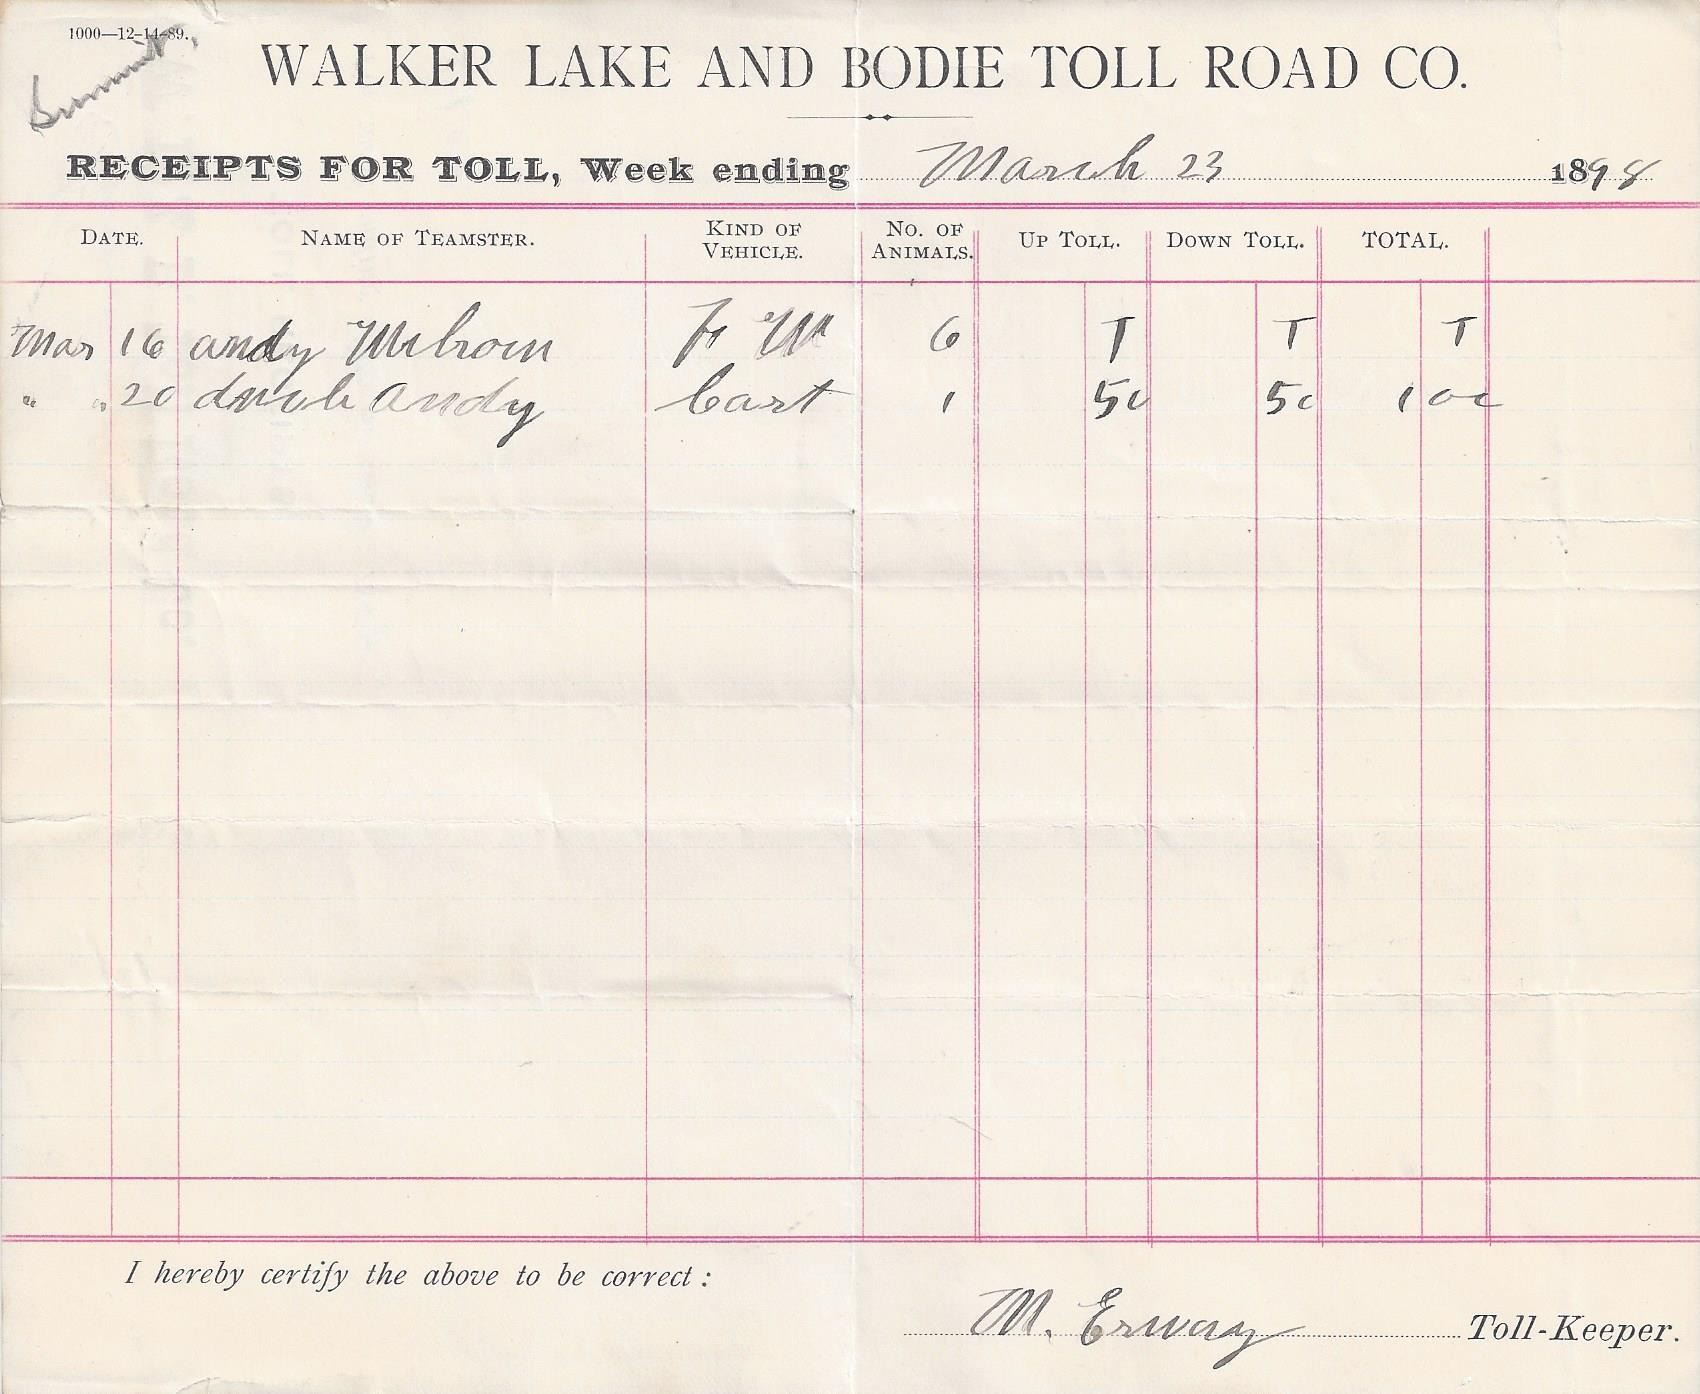 1000—12-14-89.
Summit.
WALKER LAKE AND BODIE TOLL ROAD CO.
RECEIPTS FOR TOLL, Week ending March 23 1898
DATE. NAME OF TEAMSTER. KIND OF VEHICLE. NO. OF ANIMALS. UP TOLL. DOWN TOLL. TOTAL.
Mar 16 andy 6 T T T
" " 20 andy Cart 1 50 50 1 00
I hereby certify the above to be correct:
M. Erway Toll-Keeper.